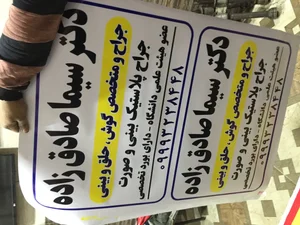 دکتر سیما صادق زاده
جراح و متخصص گوش، حلق و بینی
جراح پلاستیک بینی و صورت
عضو هیئت علمی دانشگاه - دارای بورد تخصصی
۰۹۹۹۳۳۳۸۴۴۸
دکتر سیما صادق زاده
جراح و متخصص گوش، حلق و بینی
جراح پلاستیک بینی و صورت
عضو هیئت علمی دانشگاه - دارای بورد تخصصی
۰۹۹۹۳۳۳۸۴۴۸